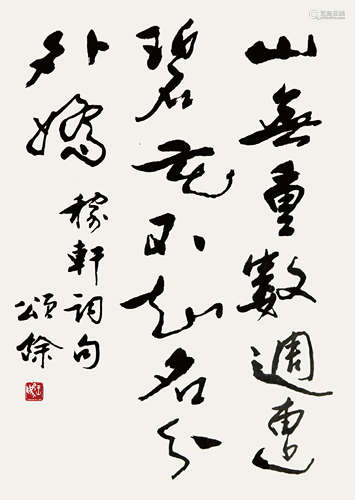 山無重數週遭
碧花不知名分
外嬌
稼軒詞句
頌餘